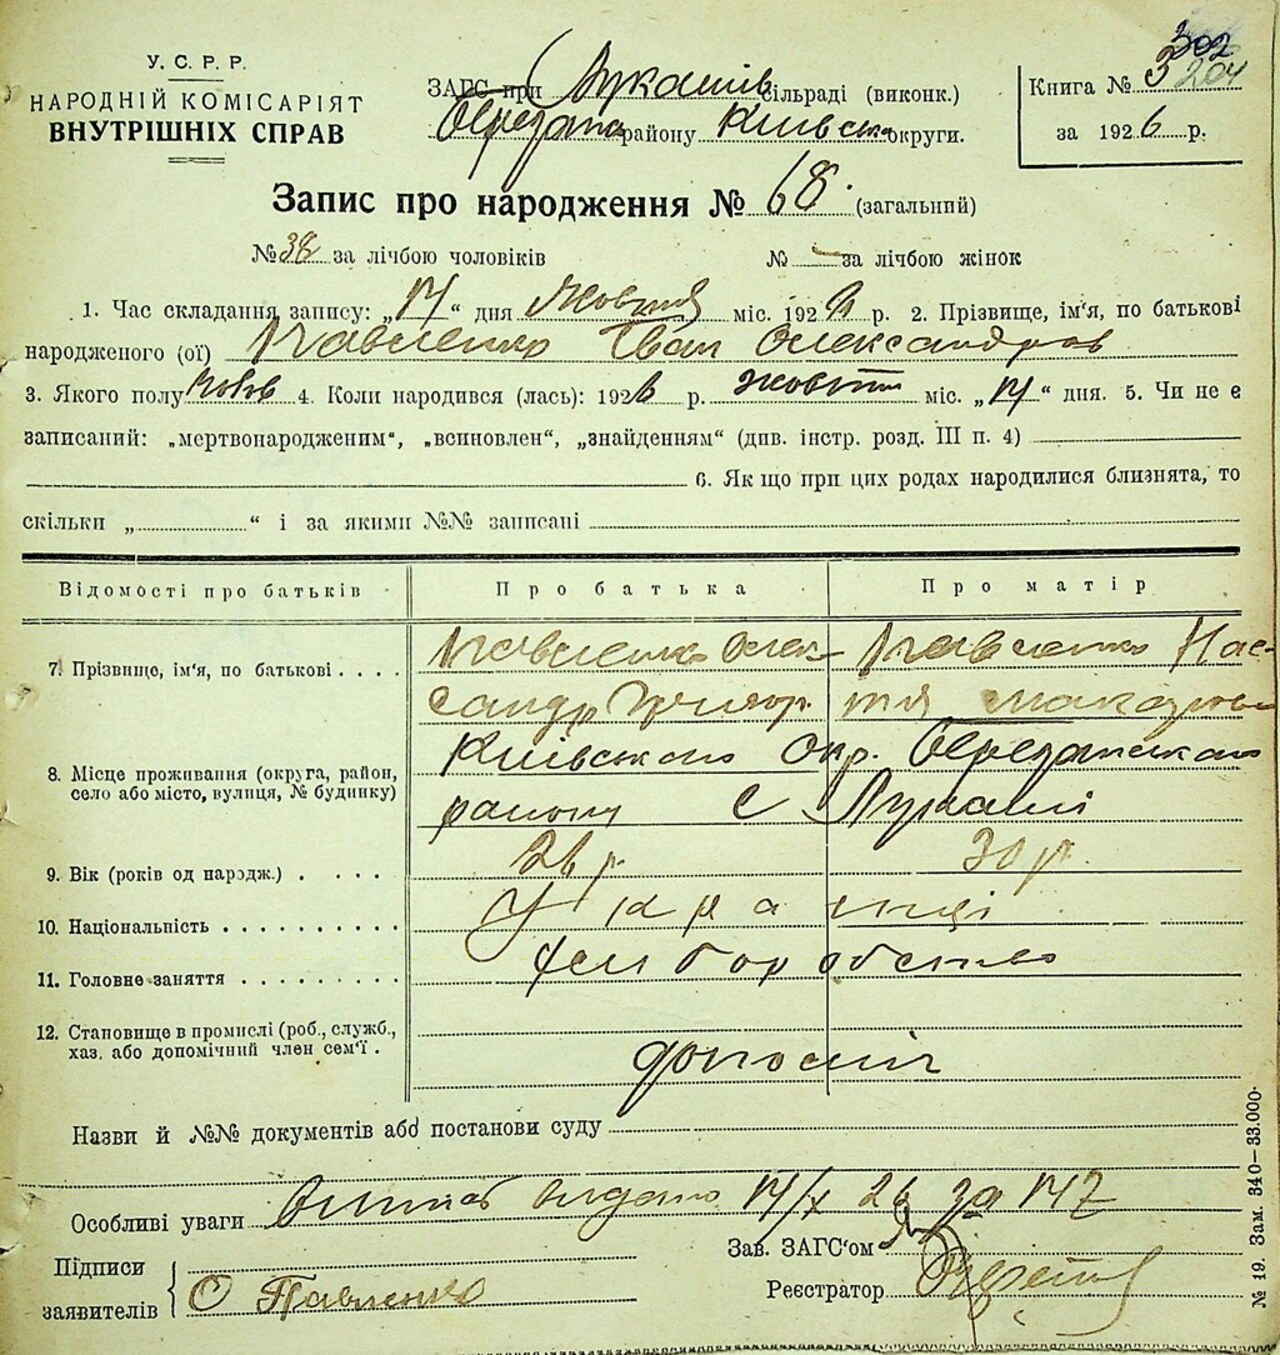 302
У. С. Р. Р.
НАРОДНІЙ КОМІСАРІЯТ
ВНУТРІШНІХ СПРАВ
ЗАГС при Лукашів сільраді (виконк.)
Березан району Київськ округи.
Книга № 3 204
за 1926 р.
Запис про народження № 68. (загальний)
№ 38 за лічбою чоловіків
№ — за лічбою жінок
1. Час складання запису: „14“ дня Жовтня міс. 1926 р. 2. Прізвище, ім'я, по батькові
народженого (ої) Павленко Іван Олександров
3. Якого полу чолов 4. Коли народився (лась): 1926 р. жовтня міс. „14“ дня. 5. Чи не є
записаний: „мертвонародженим“, „всиновлен“, „знайденням“ (див. інстр. розд. III п. 4)
6. Як що при цих родах народилися близнята, то
скільки „ “ і за якими №№ записані
Відомості про батьків Про батька Про матір
7. Прізвище, ім'я, по батькові . . . .
Павленко Олек- Павленко Нас-
сандр Григор. тя
8. Місце проживання (округа, район,
село або місто, вулиця, № будинку)
Київського Окр. Березанського
району С Лукаші
9. Вік (років од народж.) . . . . 26 р. 30 р.
10. Національність . . . . . . . . . . Українці
11. Головне заняття . . . . . . . . . Хліборобство
12. Становище в промислі (роб., служб.,
хаз. або допомічний член сем'ї .
допоміч
Назви й №№ документів або постанови суду
Особливі уваги Витяг видано 14/X 26 за 147
Підписи
заявителів { О Павленко
Зав. ЗАГС'ом
Реєстратор
№ 19. Зам. 340—33.000.